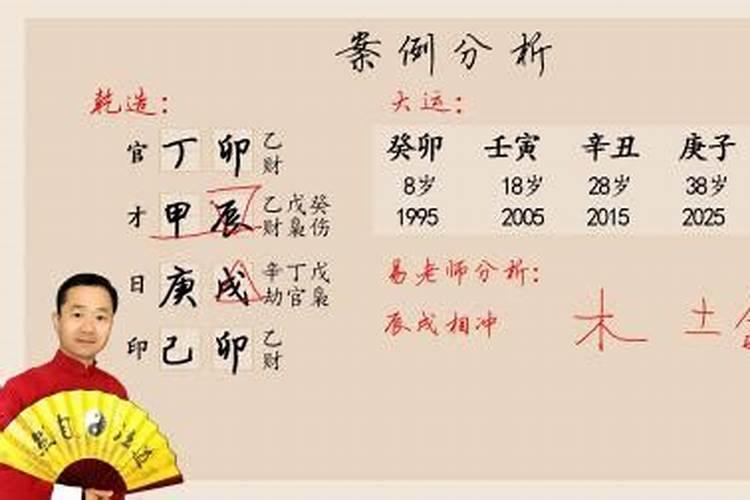 案例分析
乾造：
官 丁 卯 乙财
才 甲 辰 乙财 戊枭 癸伤
日 庚 戌 辛劫 丁官 戊枭
印 己 卯 乙财
大运：
癸卯 壬寅 辛丑 庚子
8岁 18岁 28岁 38岁
1995 2005 2015 2025
易老师分析：
辰戌相冲
木 土